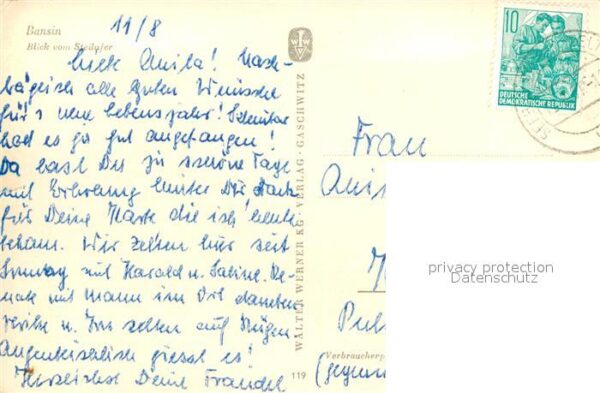 Bansin
Blick vom Steilufer
11/8
Liebe Anita! Nach-
träglich alle guten Wünsche
für's neue Lebensjahr!
hat es ja gut angefangen!
Da hast Du ja schöne Tage
mit Erholung hinter Dir. Dank
für Deine Karte die ich heute
bekam. Wir zelten hier seit
Sonntag mit Harald u. Sabine. Re-
nate mit Mann im Ort daneben
u. zelten auf Rügen
Augenblicklich giesst es!
Herzlichst Deine
WALTER WERNER KG · VERLAG · GASCHWITZ
119
10
DEUTSCHE
DEMOKRATISCHE REPUBLIK
Frau
privacy protection
Datenschutz
Verbraucherp